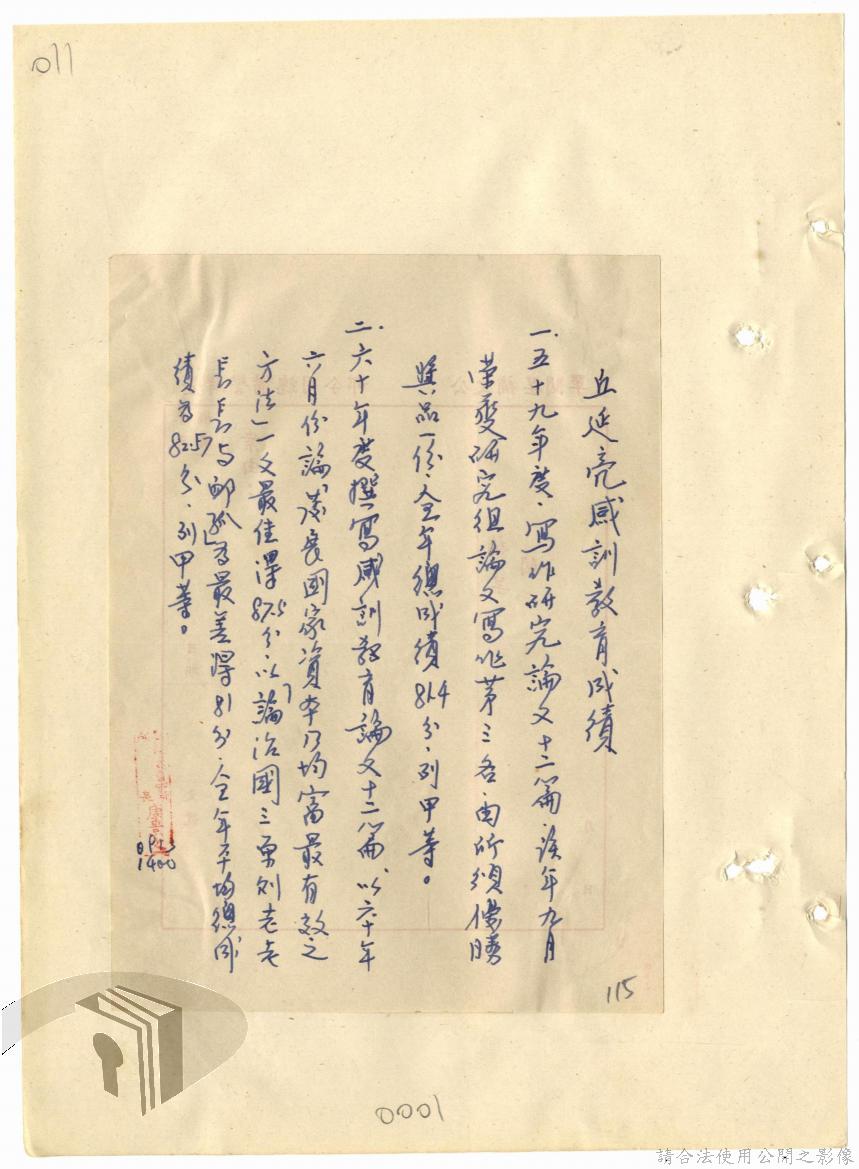 011
丘延亮感訓教育成績
一.五十九年度、寫作研究論文十二篇、該年九月
榮獲研究組論文寫作第三名由所頒優勝
獎品一份、全年總成績81.4分、列甲等。
二.六十年度撰寫感訓教育論文十二篇、以六十年
六月份論「發展國家資本乃均富最有效之
方法」一文最佳得87.5分、以「論治國三要則老者
長長與卹孤」為最差得81分、全年平均總成
績為82.57分、列甲等。
1400
115
0001
請合法使用公開之影像